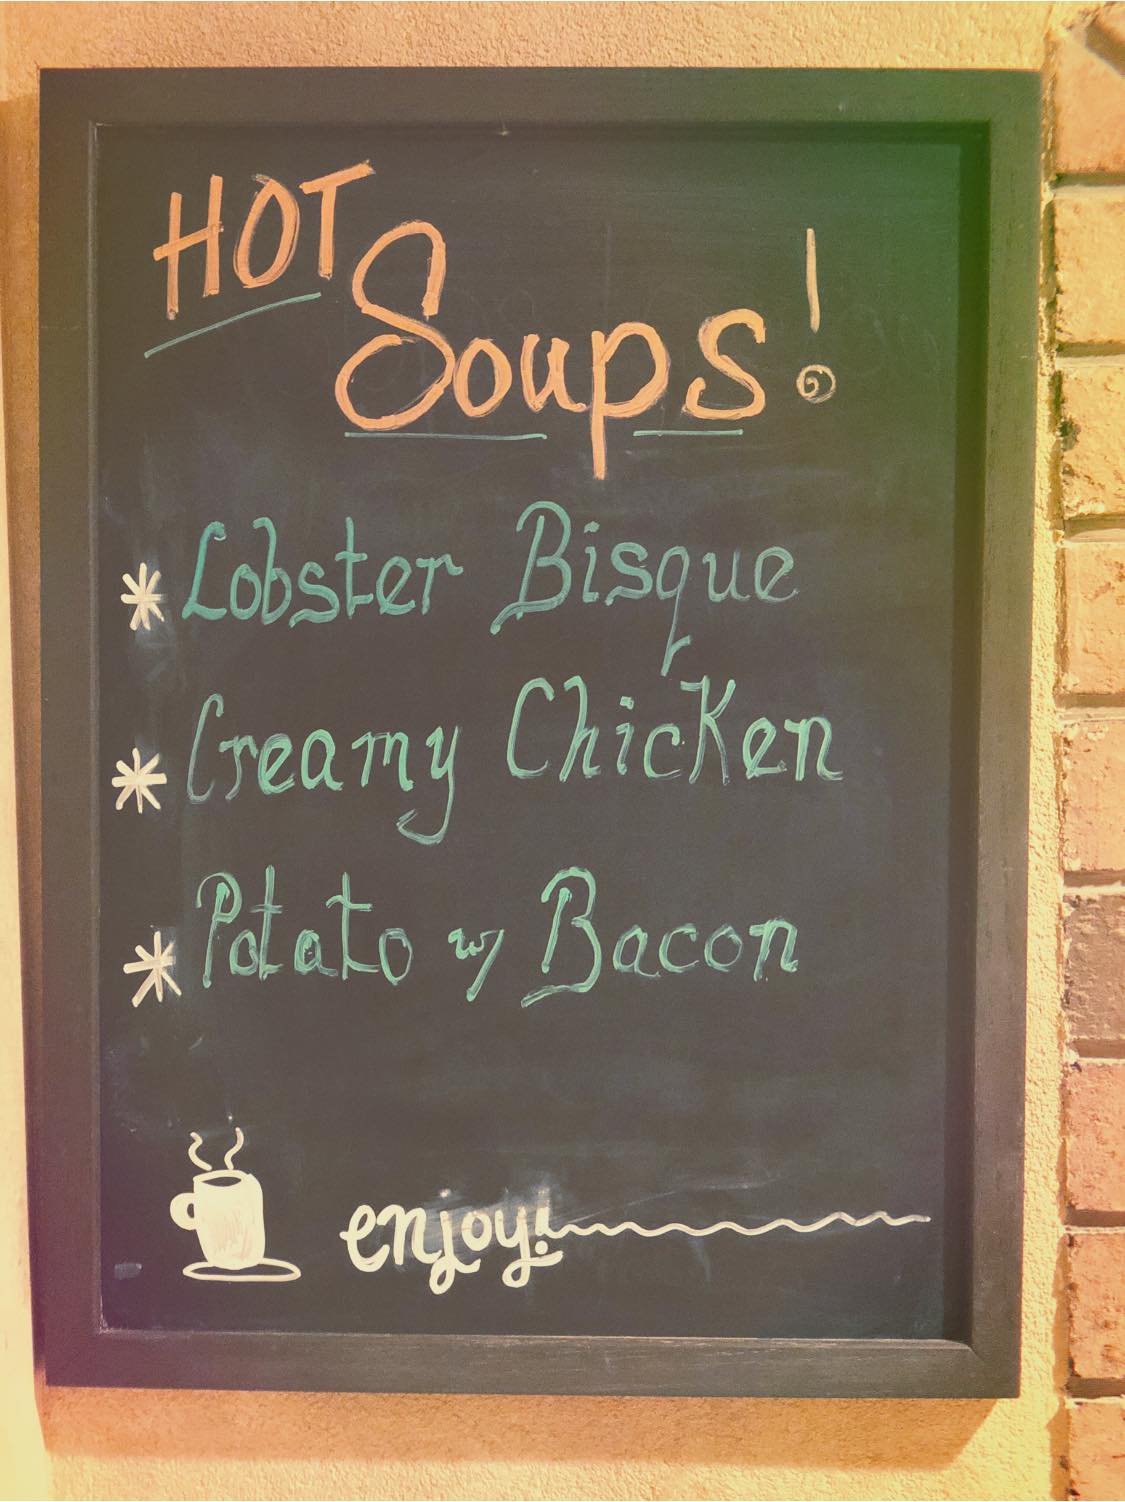 HOT
Soups!
* Lobster Bisque
* Creamy Chicken
* Potato w/ Bacon
enjoy!